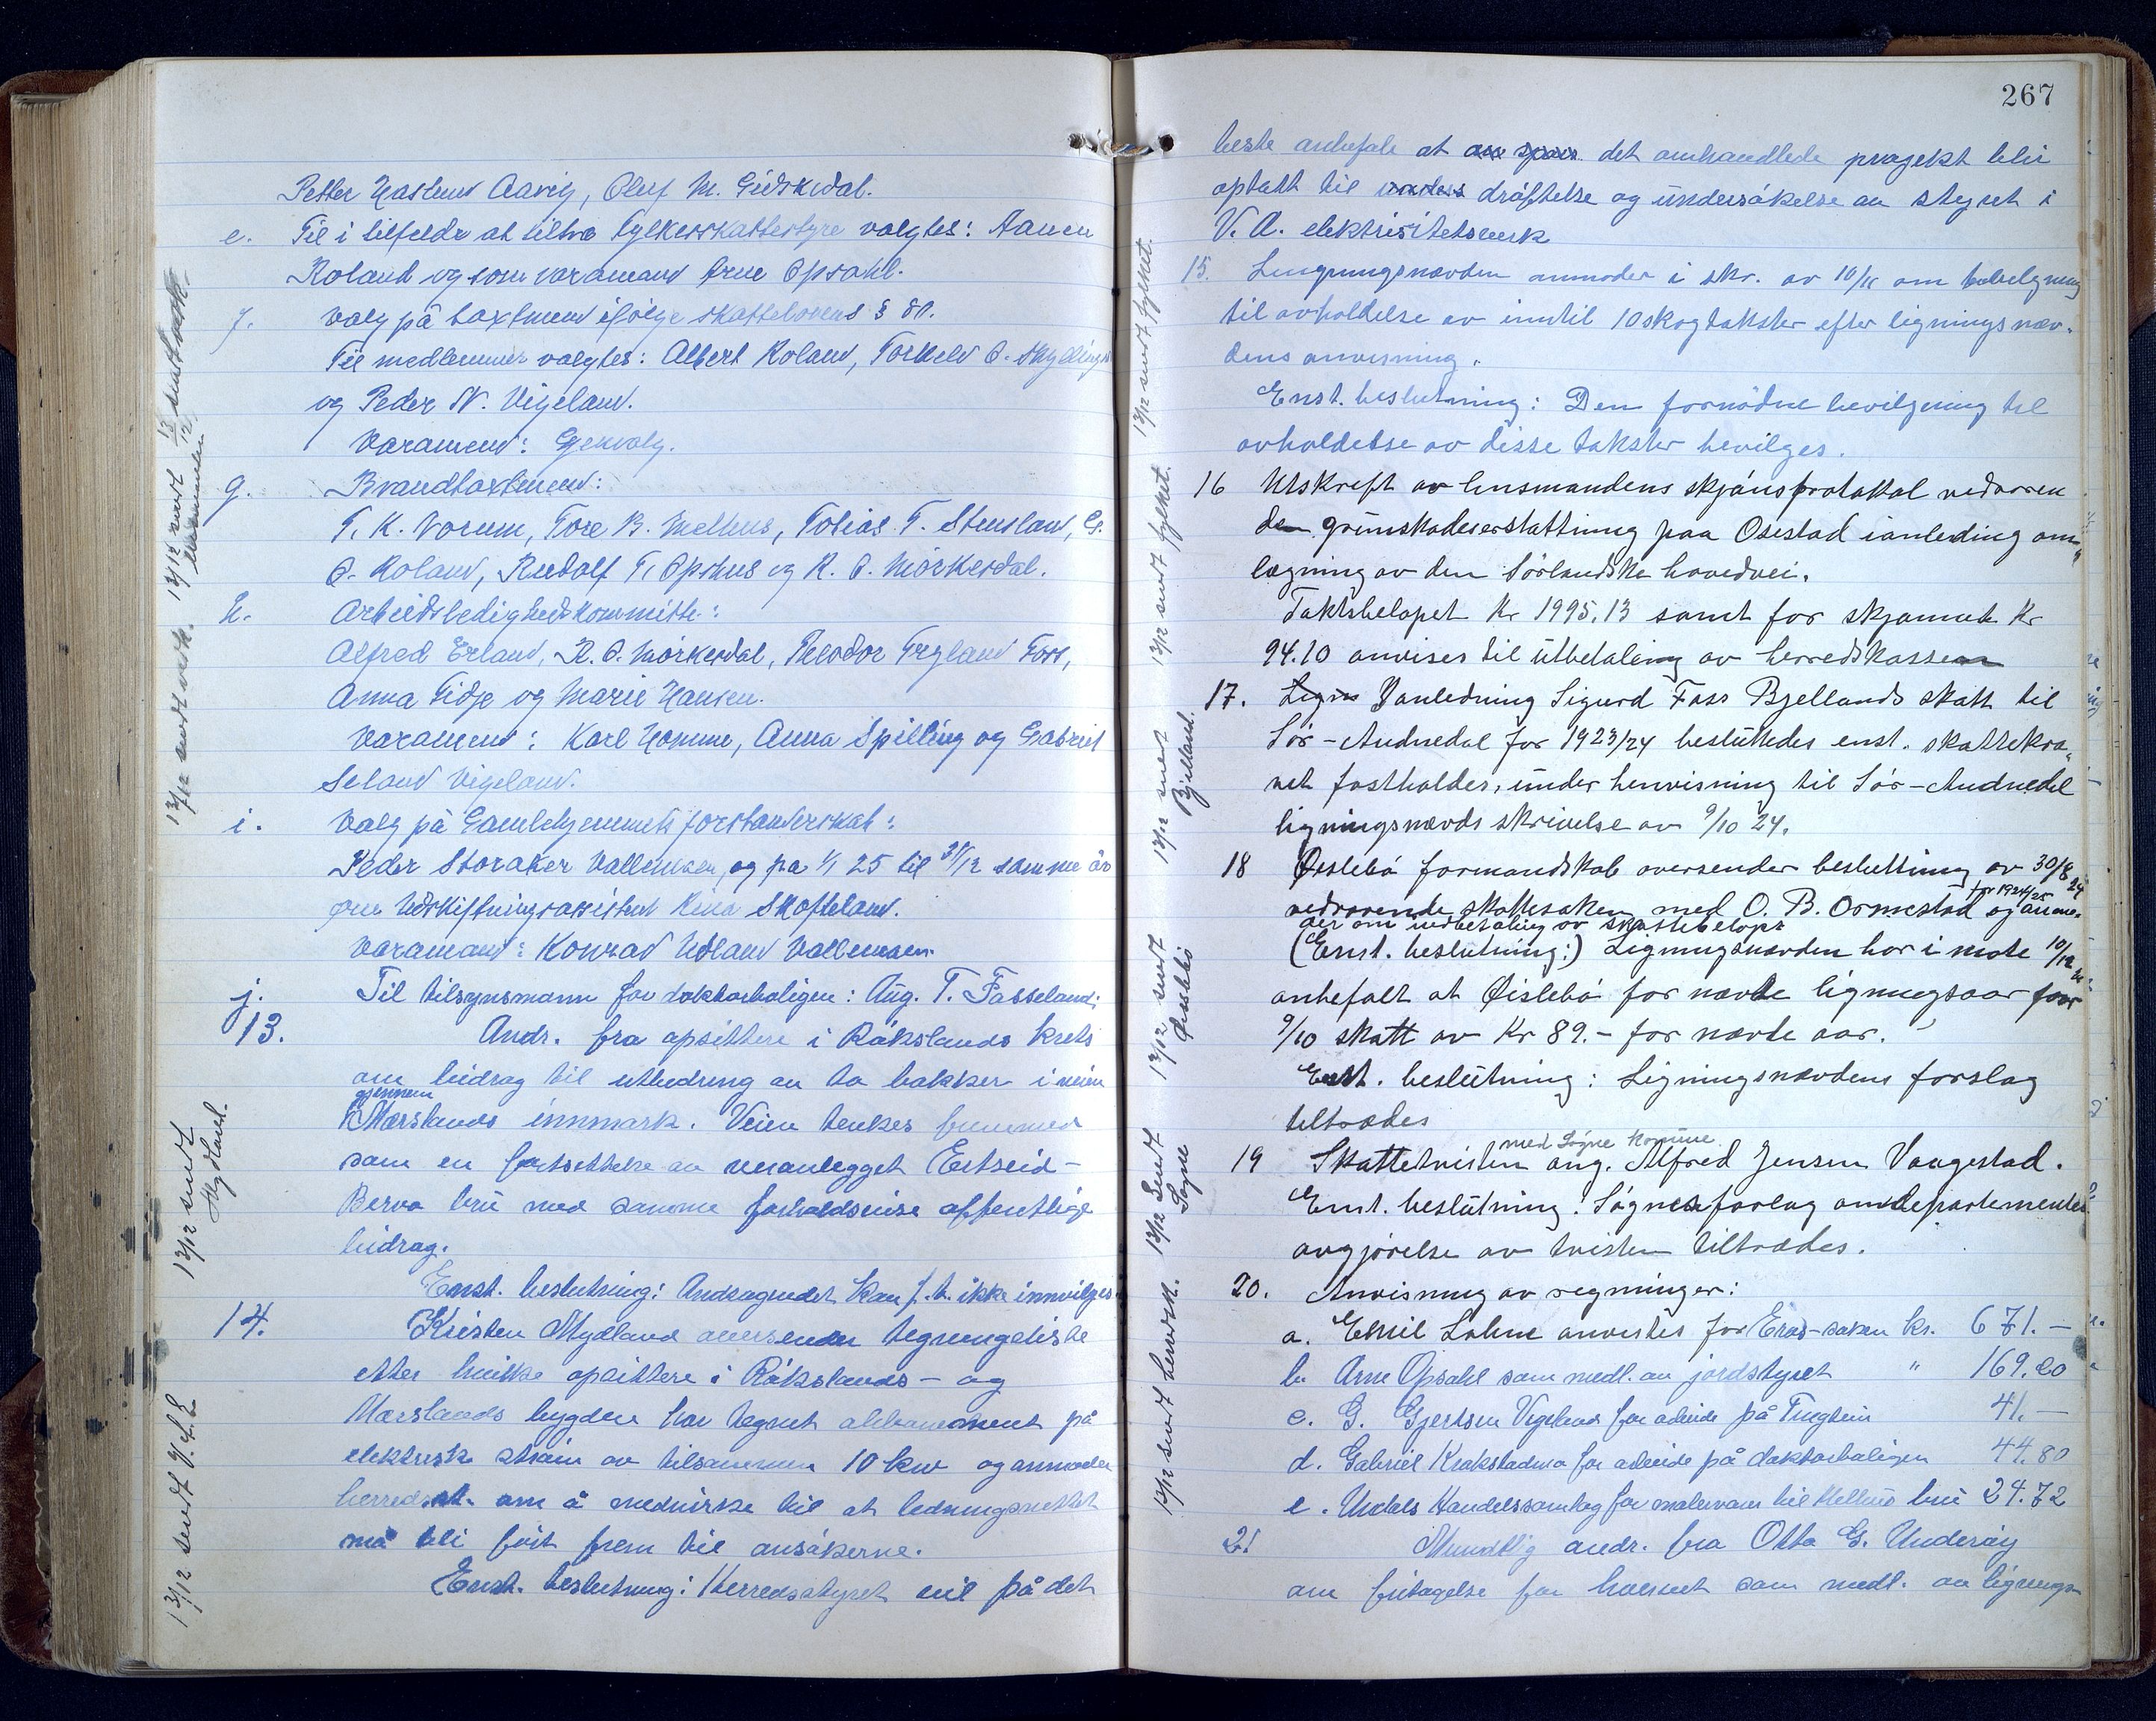 267
Petter Aavig, Oluf M. Gidskedal.
e. Til i tilfelde at tiltræ Fylkesskattestyre valgtes: Aanen
Roland og som varamand Arne Opsahl.
f. Valg på taxtmend ifölge skattelovens § 80.
Til medlemmer valgtes: Albert Roland, Torkeld O.
og Peder N. Vigeland.
Varamend: Gjenvalg.
g. Brandtaxtmend:
T. K. Vorum, Tore B. Melhus, Tobias T. Stensland, G.
O. Roland, Rudolf T. Opshus og R. O. Mörkesdal.
h. Arbeidsledighedskommitte:
Alfred Erland, R. O. Mörkesdal, Theodor Trygland Foss,
Anna Tidje og Marie Hansen.
Varamend: Karl Homme, Anna Spilling og Gabriel
Seland Vigeland.
i. Valg på Gamlehjemmets forstanderskab:
Peder Storaker Vallemoen, og fra 1/1 25 til 31/12 samme år
fru Utskiftningsassistent Skofteland.
Varamand: Konrad Udland Vallemoen.
j. Til tilsynsmann for doktorboligen: Aug. T. Fasseland.
13. Andr. fra opsittere i Råkslands krets
om bidrag til utbedring av to bakker i veien
gjennem
Mærslands innmark. Veien tenkes
som en fortsettelse av veianlegget Eirtseid-
Berva bru med samme forholdsvise offentlige
bidrag.
Enst. beslutning: Andragendet kan f. t. ikke innvilges.
14. Kristen Mydland oversender tegningsliste
etter hvilke opsittere i Råkslands- og
Mærslands bygden har tegnet abbonement på
elektrisk ström av tilsammen 10 kw og anmoder
herredsst. om å medvirke til at ledningsnettet
må bli fört frem til ansökerne.
Enst. beslutning: Herredsstyret vil på det
13/12 sendt lensmanden 13/12 skattedk.
13/12 sendt vedk.
13/12 sendt Mydland.
13/12 sendt V. A. E
beste anbefale at det omhandlede prosjekt blir
optatt til dröftelse og undersökelse av styret i
V. A. elektrisitetsverk
15. Ligningsnævnden anmoder i skr. av 10/11 om bevilgning
til avholdelse av inntil 10 skogtakster efter ligningsnæv-
dens anvisning.
Enst. beslutning: Den fornödne bevilgning til
avholdelse av disse takster bevilges.
16 Utskrift av lensmandens skjönsprotokol vedrören
de grunskadeserstattning paa Osestad ianleding om-
lægning av den Sörlandske hovedvei.
Takstbelöpet Kr 1995.13 samt for skjønnet Kr
94.10 anvises til utbetaling av herredskassen
17. Ianledning Sigurd Foss Bjellands skatt til
Sör-Audnedal for 1923/24 besluttedes enst. skattekra-
vet fastholdes, under henvisning til Sör-Audnedal
ligningsnævds skrivelse av 9/10 24.
18 Øislebö formandskab oversender beslutning av 30/8 24
vedrørende skattesaken med O. B. Ormestad for 1924/25 og anmo-
der om indbetaling av skattebelöpet
(Enst. beslutning:) Ligningsnævnden har i møte 10/12
anbefalt at Øislebö for nævte ligningsaar faar
9/10 skatt av Kr 89.- for nævte aar.
Enst. beslutning: Ligningsnævdens forslag
tiltrædes
med Sögne Komune
19 Skattetvisten ang. Alfred Jensen Vaagestad.
Enst. beslutning: Sögnes forslag om departementets
avgjörelse av tvisten tiltrædes.
20. Anvisning av regninger:
a. Emil Lohne anvistes for -saken kr. 671.—
b. Arne Opsahl som medl. av jordstyret " 169.20
c. G. Gjertsen Vigeland for arbeide på Tinghein 41.—
d. Gabriel Krakstadmo for arbeide på doktorboligen 44.80
e. Undals Handelssamlag for malervarer til Melhus bru 24.72
21 Mundtlig andr. fra Otto G. Underöy
om fritagelse for hvervet som medl. av lignings-
13/12 sendt fylket.
13/12 sendt fylket.
13/12 sendt Bjelland.
13/12 sendt Øislebö
13/12 Sendt Sögne
13/12 sendt herredsk.